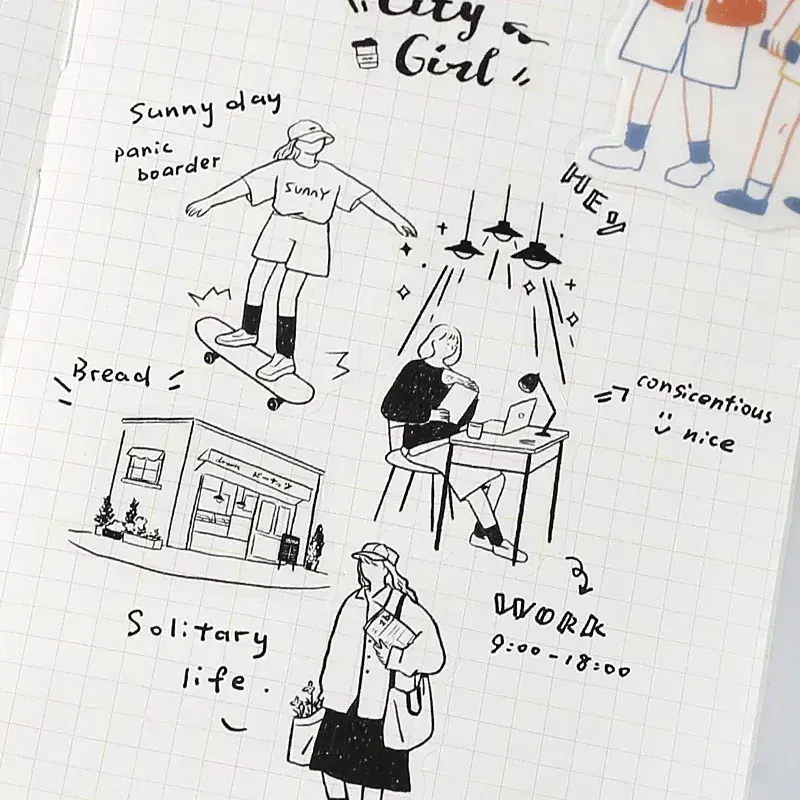 City
Girl
Sunny day
panic
boarder
SUNNY
HEY
Bread
consicentious
nice
ドーナッツ
WORK
9:00-18:00
Solitary
life.